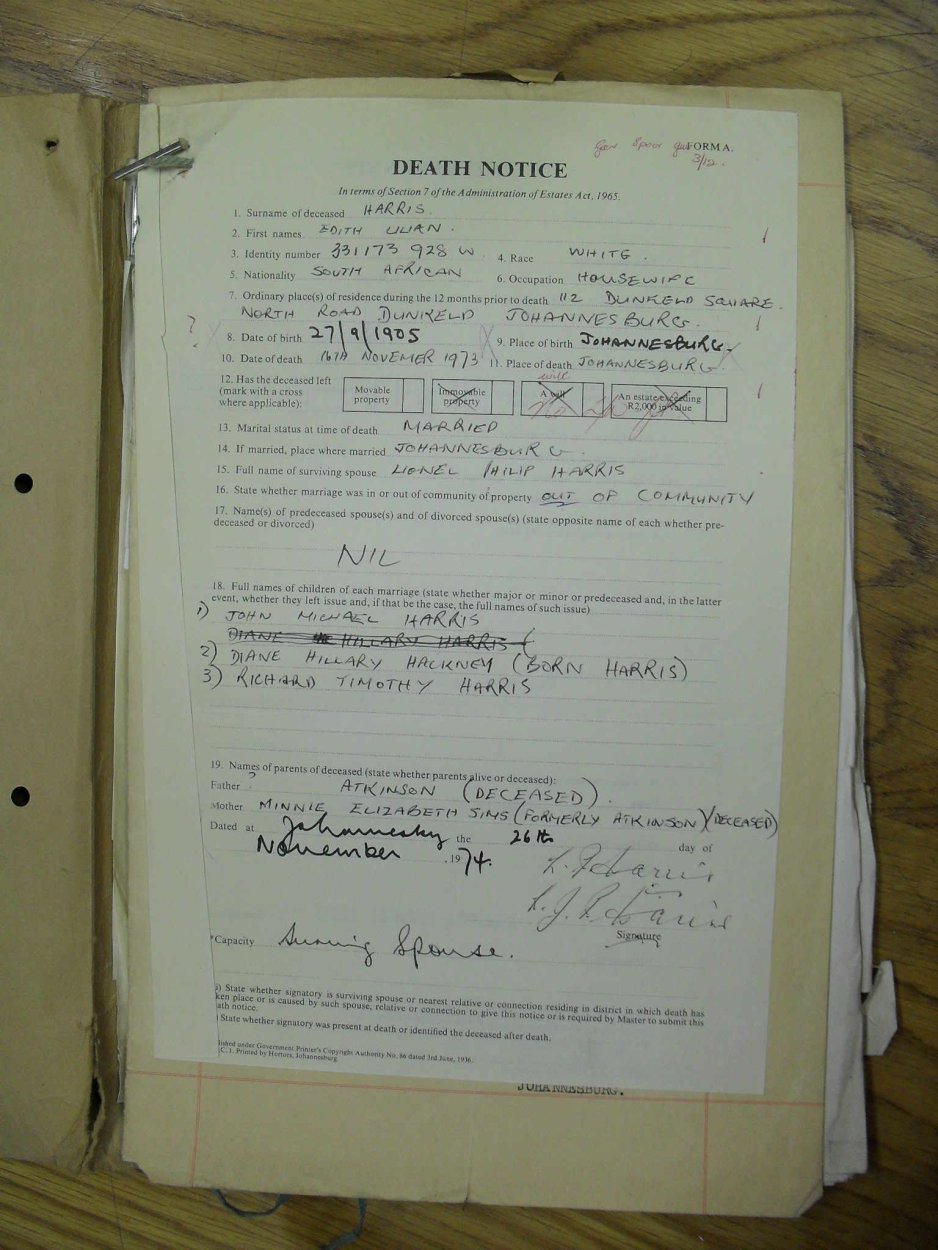 FORM A.
3/12.
DEATH NOTICE
In terms of Section 7 of the Administration of Estates Act, 1965.
1. Surname of deceased HARRIS.
2. First names. EDITH LILIAN.
3. Identity number 331173 928 W 4. Race WHITE.
5. Nationality SOUTH AFRICAN 6. Occupation HOUSEWIFE
7. Ordinary place(s) of residence during the 12 months prior to death 112 DUNKELD SQUARE.
NORTH ROAD DUNKELD JOHANNESBURG.
? 8. Date of birth 27/9/1905 9. Place of birth JOHANNESBURG.
10. Date of death 16TH NOVEMER 1973 11. Place of death JOHANNESBURG.
will
12. Has the deceased left (mark with a cross where applicable): Movable property Immovable property A will An estate exceeding R2,000 in value
13. Marital status at time of death. MARRIED
14. If married, place where married JOHANNESBURG
15. Full name of surviving spouse LIONEL PHILIP HARRIS
16. State whether marriage was in or out of community of property OUT OF COMMUNITY
17. Name(s) of predeceased spouse(s) and of divorced spouse(s) (state opposite name of each whether pre-
deceased or divorced)
NIL
18. Full names of children of each marriage (state whether major or minor or predeceased and, in the latter
event, whether they left issue and, if that be the case, the full names of such issue)
1) JOHN MICHAEL HARRIS
DIANE HILLARY HARRIS (
2) DIANE HILLARY HACKNEY (BORN HARRIS)
3) RICHARD TIMOTHY HARRIS
19. Names of parents of deceased (state whether parents alive or deceased):
Father ? ATKINSON (DECEASED).
Mother MINNIE ELIZABETH SIMS (FORMERLY ATKINSON) (DECEASED)
Dated at Johannesburg the 26th day of
November 1974.
L. P. Harris
L. J. P. Harris
Signature
*Capacity Surviving Spouse.
) State whether signatory is surviving spouse or nearest relative or connection residing in district in which death has
ken place or is caused by such spouse, relative or connection to give this notice or is required by Master to submit this
ath notice.
State whether signatory was present at death or identified the deceased after death.
lished under Government Printer's Copyright Authority No. 86 dated 3rd June, 1936.
C. 1. Printed by Hortors, Johannesburg.
JOHANNESBURG.